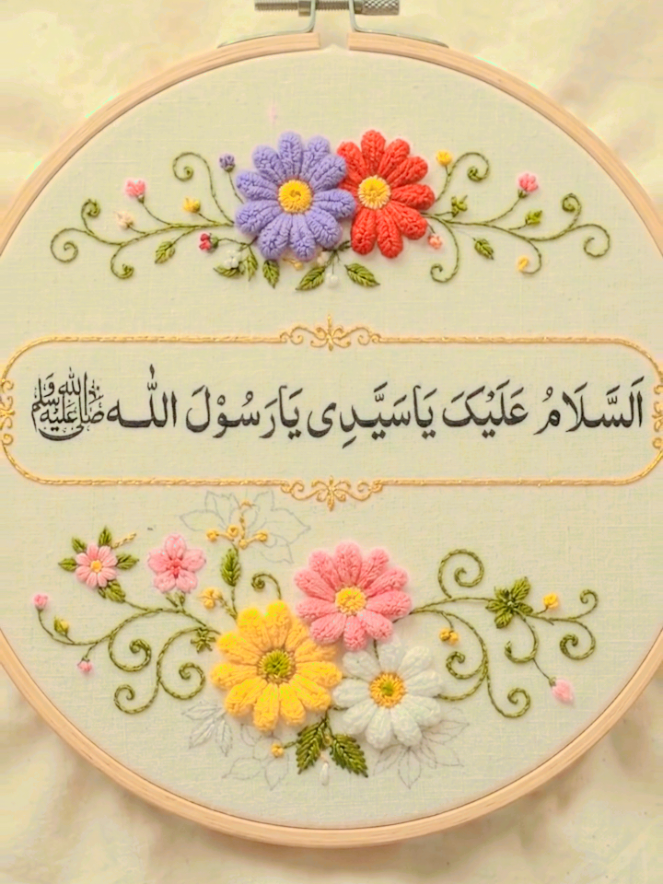 اَلسَّلَامُ عَلَیْکَ یَاسَیَّدِی یَارَسُوْلَ اللّٰه ﷺ